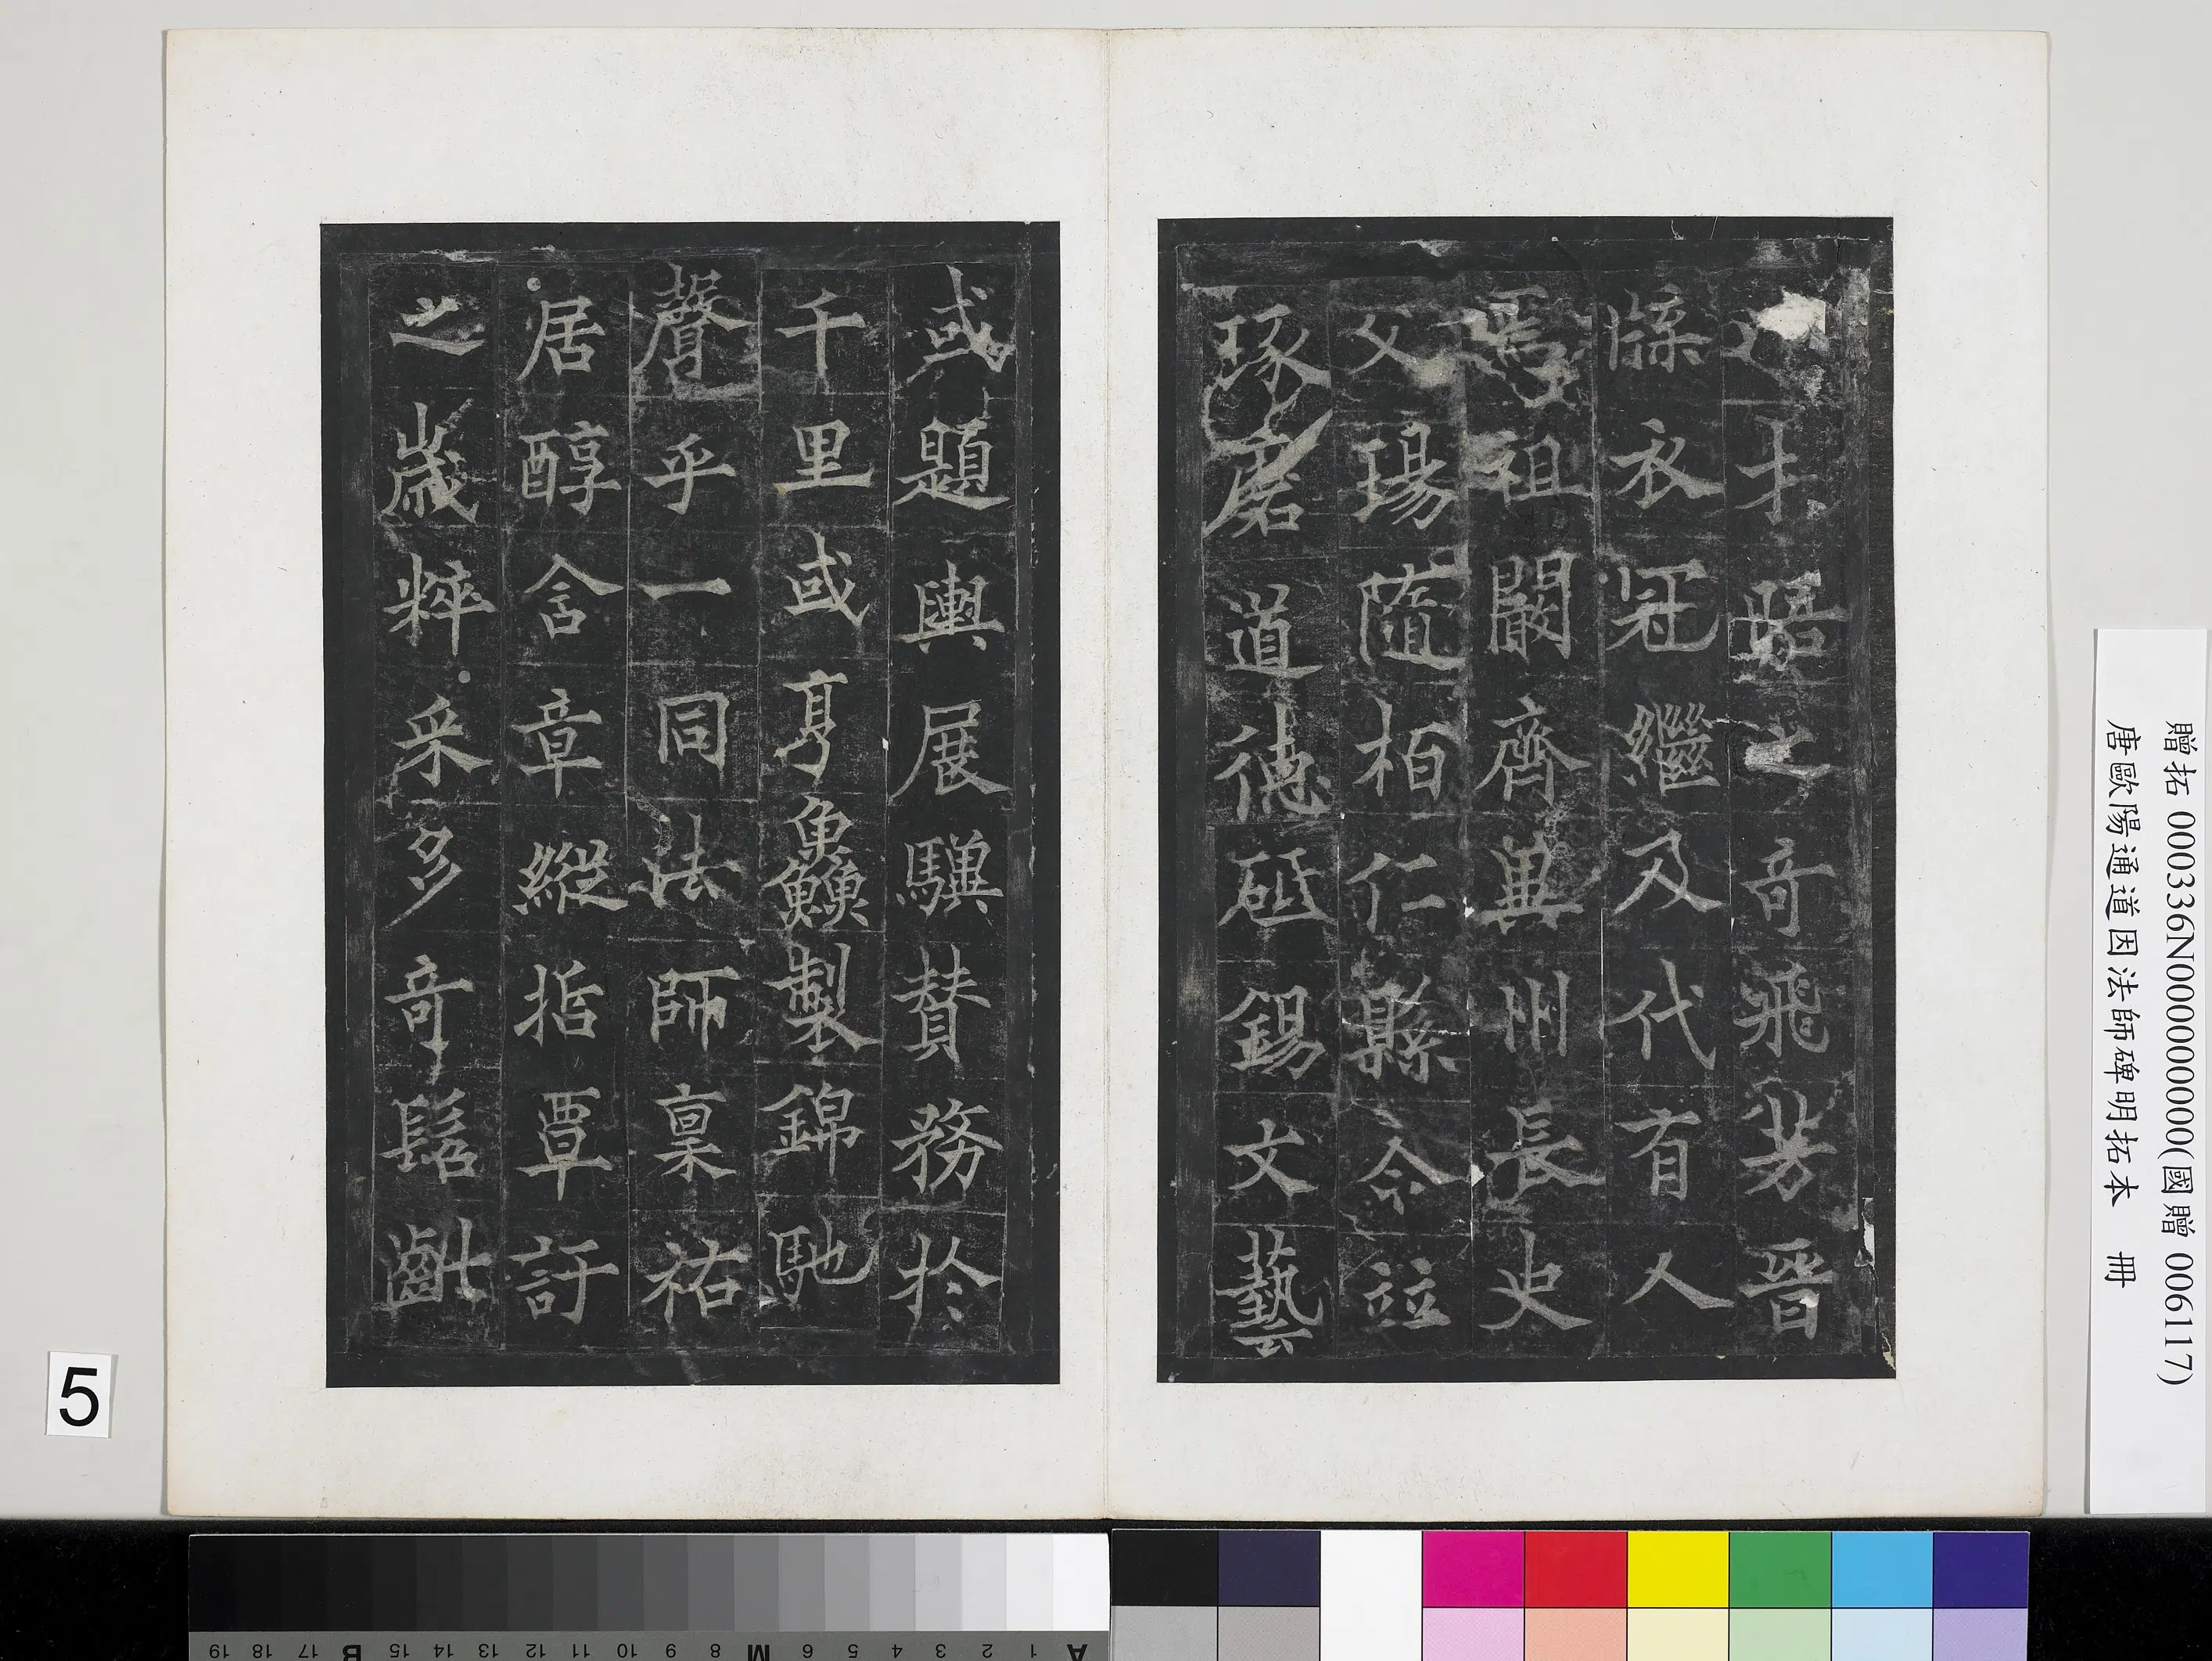 才晤之奇飛芳晉
牒衣冠繼及代有人
焉祖闞齊興州長史
父瑒隨柏仁縣令竝
琢磨道德砥錫文藝
或題輿展驥贊務於
千里或亨鱻製錦馳
聲乎一同法師稟祐
居醇含章縱指覃訏
之歲粹采多奇髫齔
贈拓 000336N000000000(國贈 006117)
唐歐陽通道因法師碑明拓本 冊
5
A 1 2 3 4 5 6 M 8 9 10 11 12 13 14 15 B 17 18 19